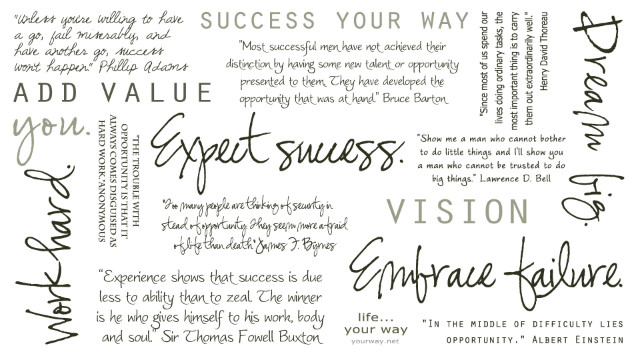 "Unless you're willing to have
a go, fail miserably, and
have another go, success
won't happen." Phillip Adams
SUCCESS YOUR WAY
"Most successful men have not achieved their
distinction by having some new talent or opportunity
presented to them. They have developed the
opportunity that was at hand." Bruce Barton
"Since most of us spend our
lives doing ordinary tasks, the
most important thing is to carry
them out extraordinarily well."
Henry David Thoreau
Dream big.
ADD VALUE
you.
"THE TROUBLE WITH
OPPORTUNITY IS THAT IT
ALWAYS COMES DISGUISED AS
HARD WORK."ANONYMOUS
Expect success.
"Show me a man who cannot bother
to do little things and I'll show you
a man who cannot be trusted to do
big things." Lawrence D. Bell
Work hard.
"Too many people are thinking of security in
stead of opportunity. They seem more afraid
of life than death." James F. Byrnes
VISION
Embrace failure.
"Experience shows that success is due
less to ability than to zeal. The winner
is he who gives himself to his work, body
and soul." Sir Thomas Fowell Buxton
life...
your way
yourway.net
"IN THE MIDDLE OF DIFFICULTY LIES
OPPORTUNITY." ALBERT EINSTEIN